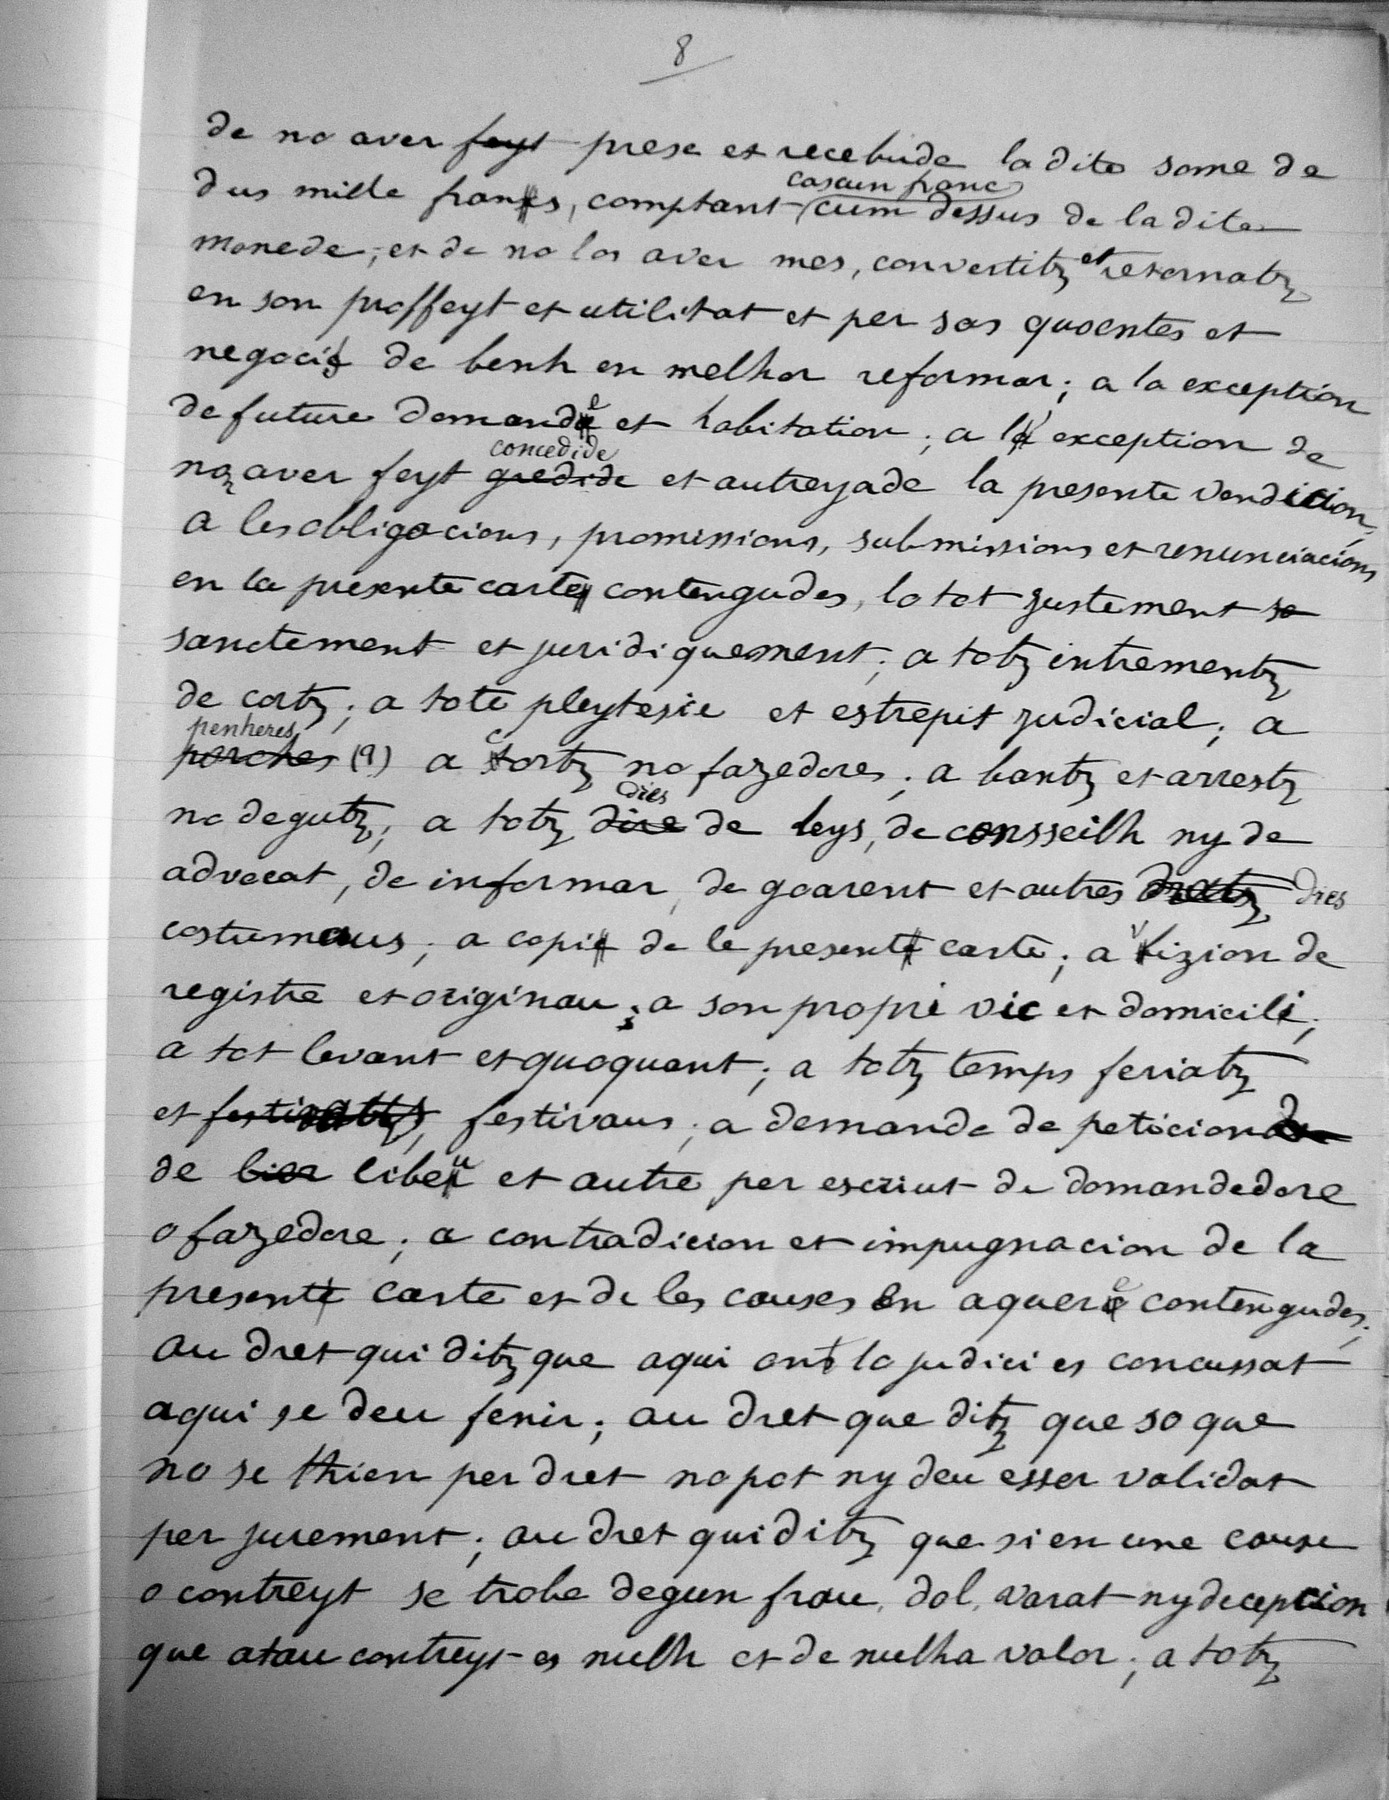 8
de no aver feyt prese et recebude la dite some de
cascun franc
dus mille francs, comptant cum dessus de la dite
monede; et de no los aver mes, convertitz et retornatz
en son proffeyt et utilitat et per sas quoentes et
negocis de benh en melhor reformar; a la exception
de future demande et habitation; a le exception de
concedide
no aver feyt gredide et autreyade la presente vendicion,
a les obligacions, promissions, submissions et renunciacions
en la presente carte contengudes, lo tot justement se
sanctement et juridiquement; a totz intrementz
de cortz; a tote pleytesie et estrepit judicial; a
penheres
porches (?) a cortz no fazedores; a bantz et arrestz
dies
no degutz; a totz dire de leys, de consseilh ny de
advocat, de informar, de goarent et autres dies
costumaus; a copie de le presente carte; a vizion de
registre et originau; a son propri vic et domicili;
a tot levant et quoquant; a totz temps feriatz
et festivatz, festivaus; a demande de peticion
de libeu et autre per escriut de domandedore
o fazedore; a contradicion et impugnacion de la
presente carte et de les causes en aquere contengudes;
au dret qui ditz que aqui ont lo judici es concussat
aqui se deu fenir; au dret que ditz que so que
no se thien per dret no pot ny deu esser validat
per jurement; au dret qui ditz que si en une cause
o contreyt se trobe degun frau, dol, varat ny deception
que atau contreyt es nulh et de nulha valor; a totz